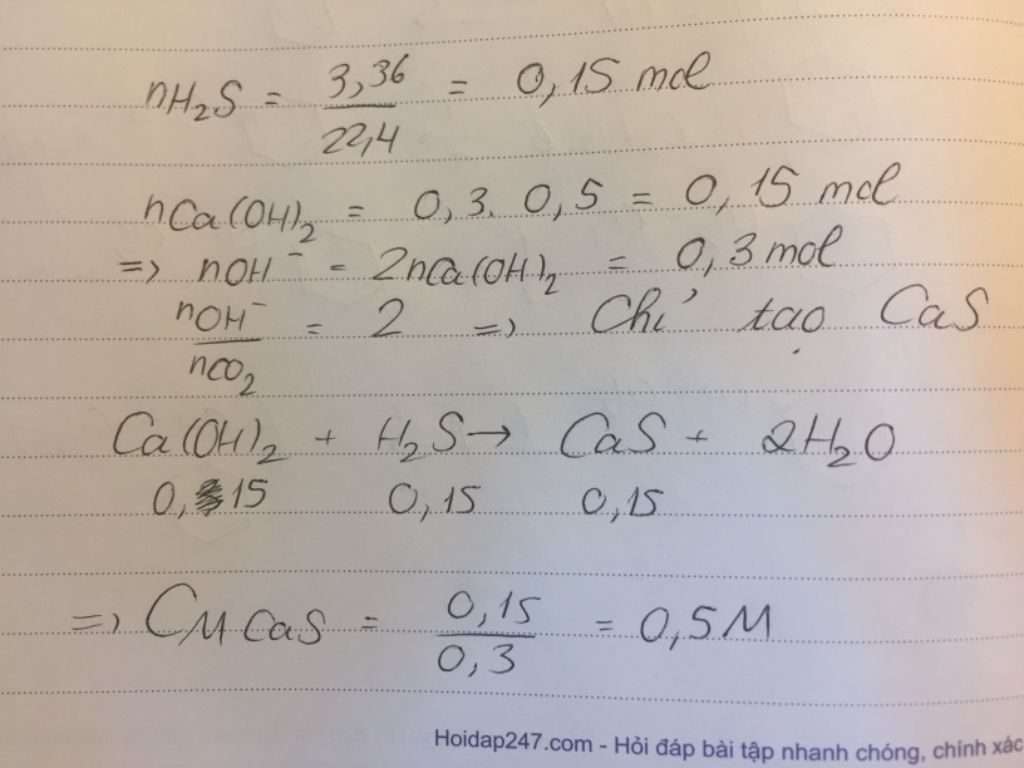 nH₂S = 3,36 / 22,4 = 0,15 mol
nCa(OH)₂ = 0,3. 0,5 = 0,15 mol
=> nOH⁻ = 2nCa(OH)₂ = 0,3 mol
nOH⁻ / nCO₂ = 2 => Chỉ tạo CaS
Ca(OH)₂ + H₂S → CaS + 2H₂O
0,15 0,15 0,15
=> CM CaS = 0,15 / 0,3 = 0,5M
Hoidap247.com - Hỏi đáp bài tập nhanh chóng, chính xác